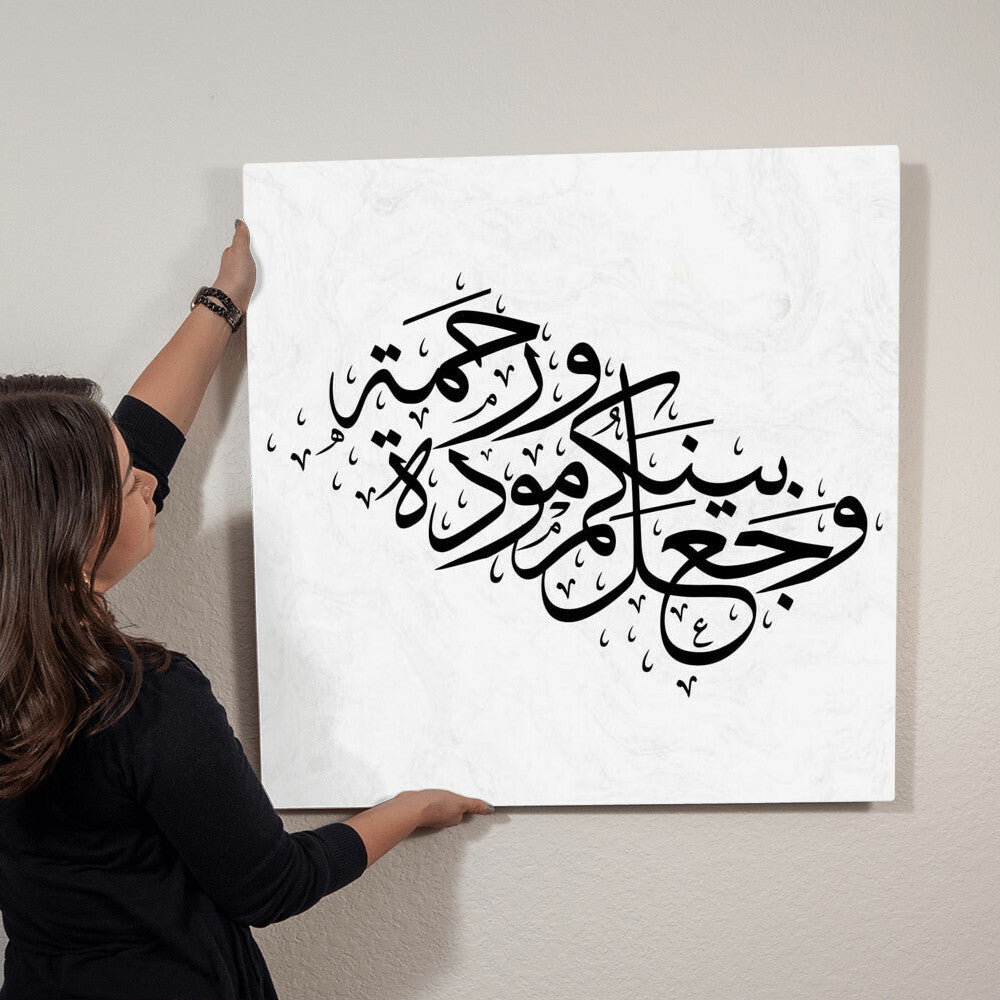 وجعل بينكم مودة ورحمة